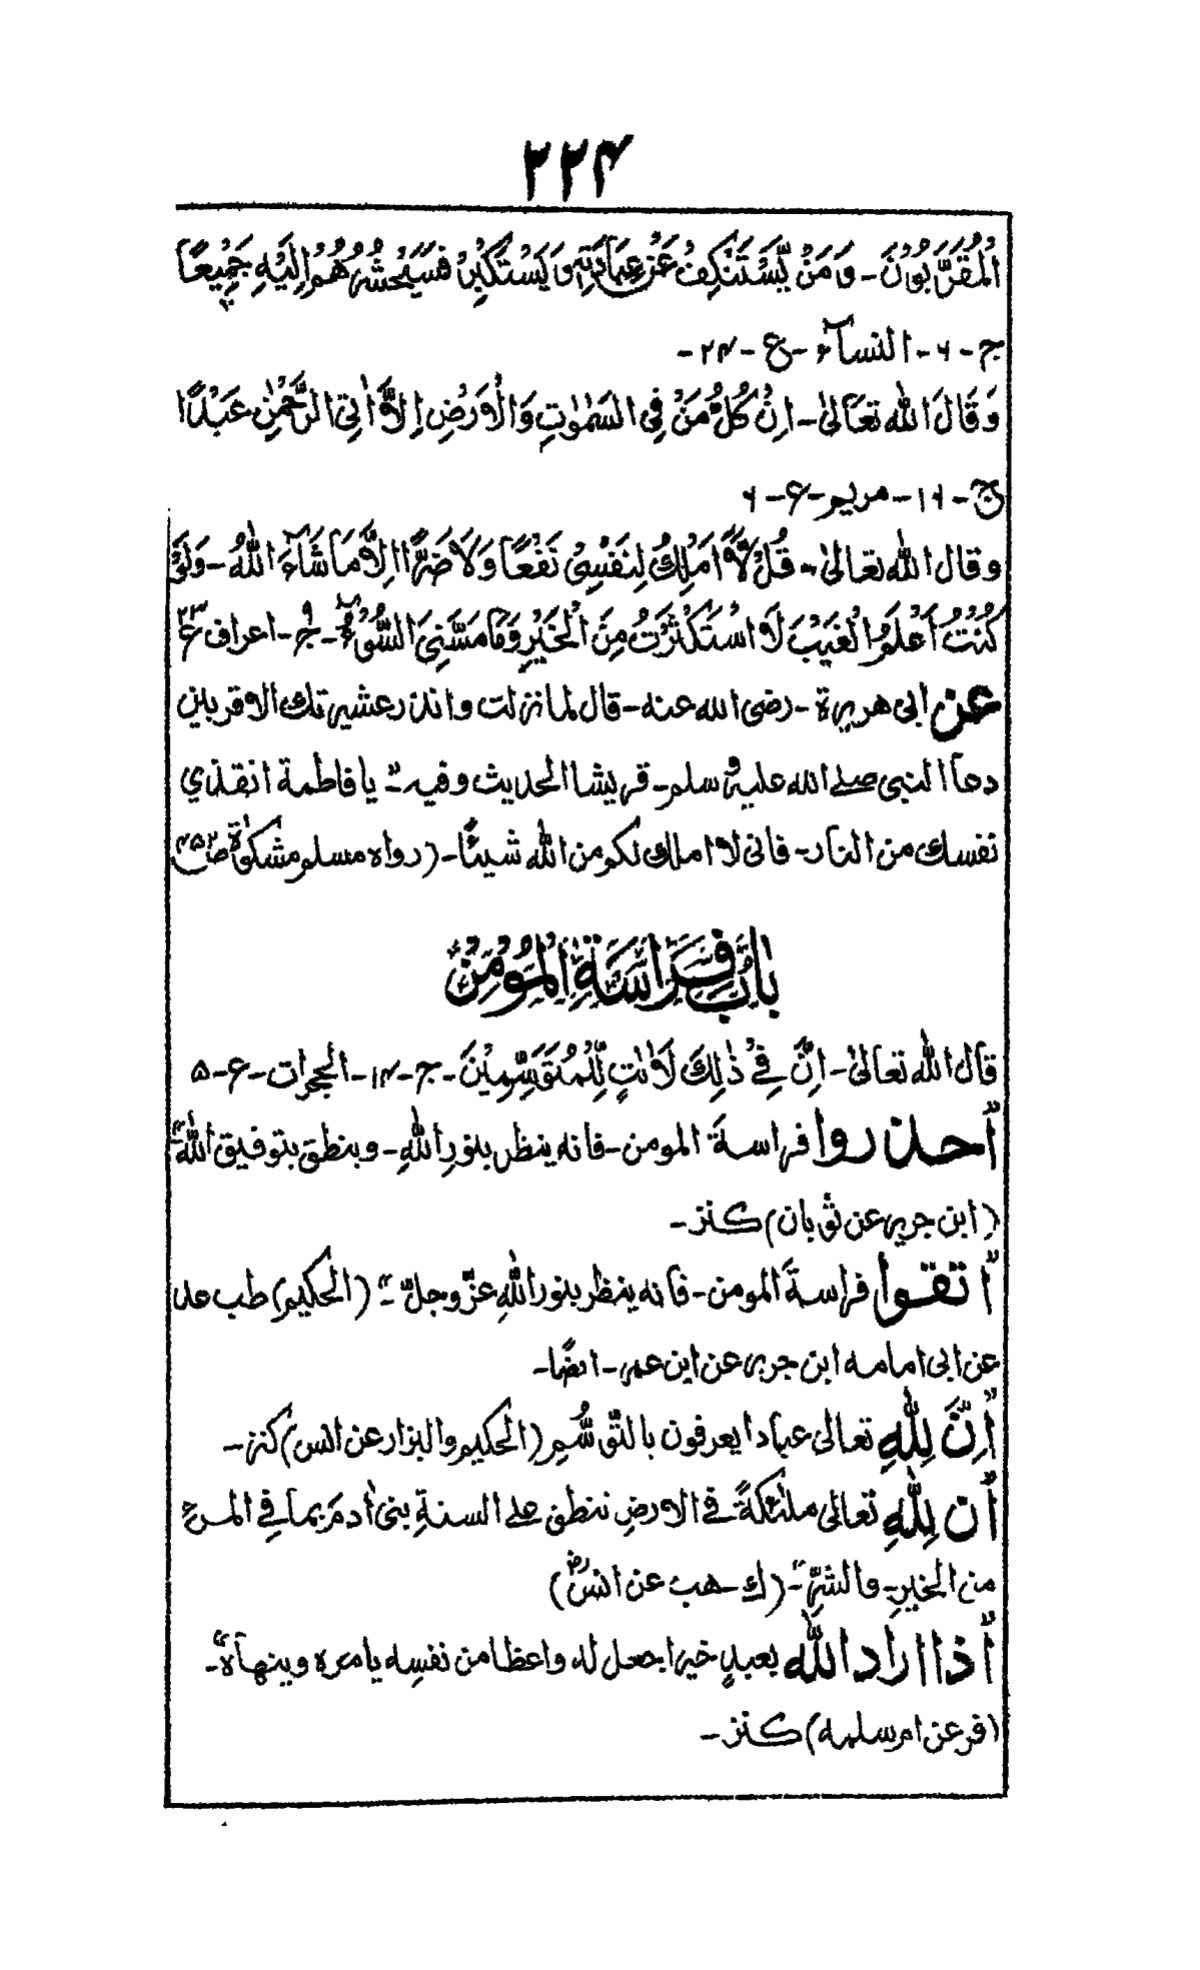 ۲۲۴
الْمُقَرَّبُوْنَ۔ وَمَنْ يَّسْتَنْكِفْ عَنْ عِبَادَتِهٖ وَيَسْتَكْبِرْ فَسَيَحْشُرُهُمْ اِلَيْهِ جَمِيْعًا
ج۔ ۶۔ النسآء۔ ع۔ ۲۴۔
وَقَالَ اللّٰه تعَالىٰ۔ اِنْ كُلُّ مَنْ فِى السَّمٰوٰتِ وَالْاَرْضِ اِلَّآ اٰتِى الرَّحْمٰنِ عَبْدًا
ج۔ ۱۶۔ مريم۔ ع۔ ۶
وقال اللّٰه تعالىٰ۔ قُلْ لَّآ اَمْلِكُ لِنَفْسِىْ نَفْعًا وَلَا ضَرًّا اِلَّا مَا شَآءَ اللّٰهُ۔ وَلَوْ
كُنْتُ اَعْلَمُ الْغَيْبَ لَا سْتَكْثَرْتُ مِنَ الْخَيْرِ وَمَا مَسَّنِىَ السُّوْٓءُ۔ ج۹۔ اعراف ع۲۳
عن ابى هريرة۔ رضى الله عنه۔ قال لما نزلت وانذر عشيرتك الاقربين
دعآ النبى صلے الله عليه وسلم۔ قريشا الحديث وفيه۔ يا فاطمة انقذي
نفسك من النار۔ فانى لا املك لكم من اللّٰه شيئًا۔ (رواه مسلم مشكوٰة ص۴۵۲)
بَابُ فِرَاسَةِ الْمُؤْمِنْ
قال اللّٰه تعالىٰ۔ اِنَّ فِىْ ذٰلِكَ لَاٰيٰتٍ لِّلْمُتَوَسِّمِيْنَ۔ ج۔ ۱۴۔ الحجرات۔ ع۔ ۵
"احذروا فراسةَ المومن۔ فانه ينظر بنورِ اللّٰهِ۔ وينطق بتوفيق اللّٰهِ"
(ابن جرير عن ثوبان) كنز۔
"اتقوا فراسةَ المومن۔ فانه ينظر بنور اللّٰهِ عزّوجلّ"۔ (الحكيم) طب عد
عن ابى امامه ابن جرير عن ابن عمر۔ ايضًا۔
"اِنَّ لِلّٰهِ تعالى عبادا يعرفون بالتَّوَسُّمِ (الحكيم والبزار عن انس) كنز۔
"ان لِلّٰهِ تعالى ملٰئكةً فى الارضِ تنطق على السنةِ بنى اٰدمَ بما فى المرءِ
من الخيرِ۔ والشرِّ"۔ (ك۔ هب عن انسؓ)
"اذا اراد اللّٰه بعبدٍ خيرا جعل له واعظا من نفسِه يامره وينهاه"۔
(فر عن ام سلمه) كنز۔